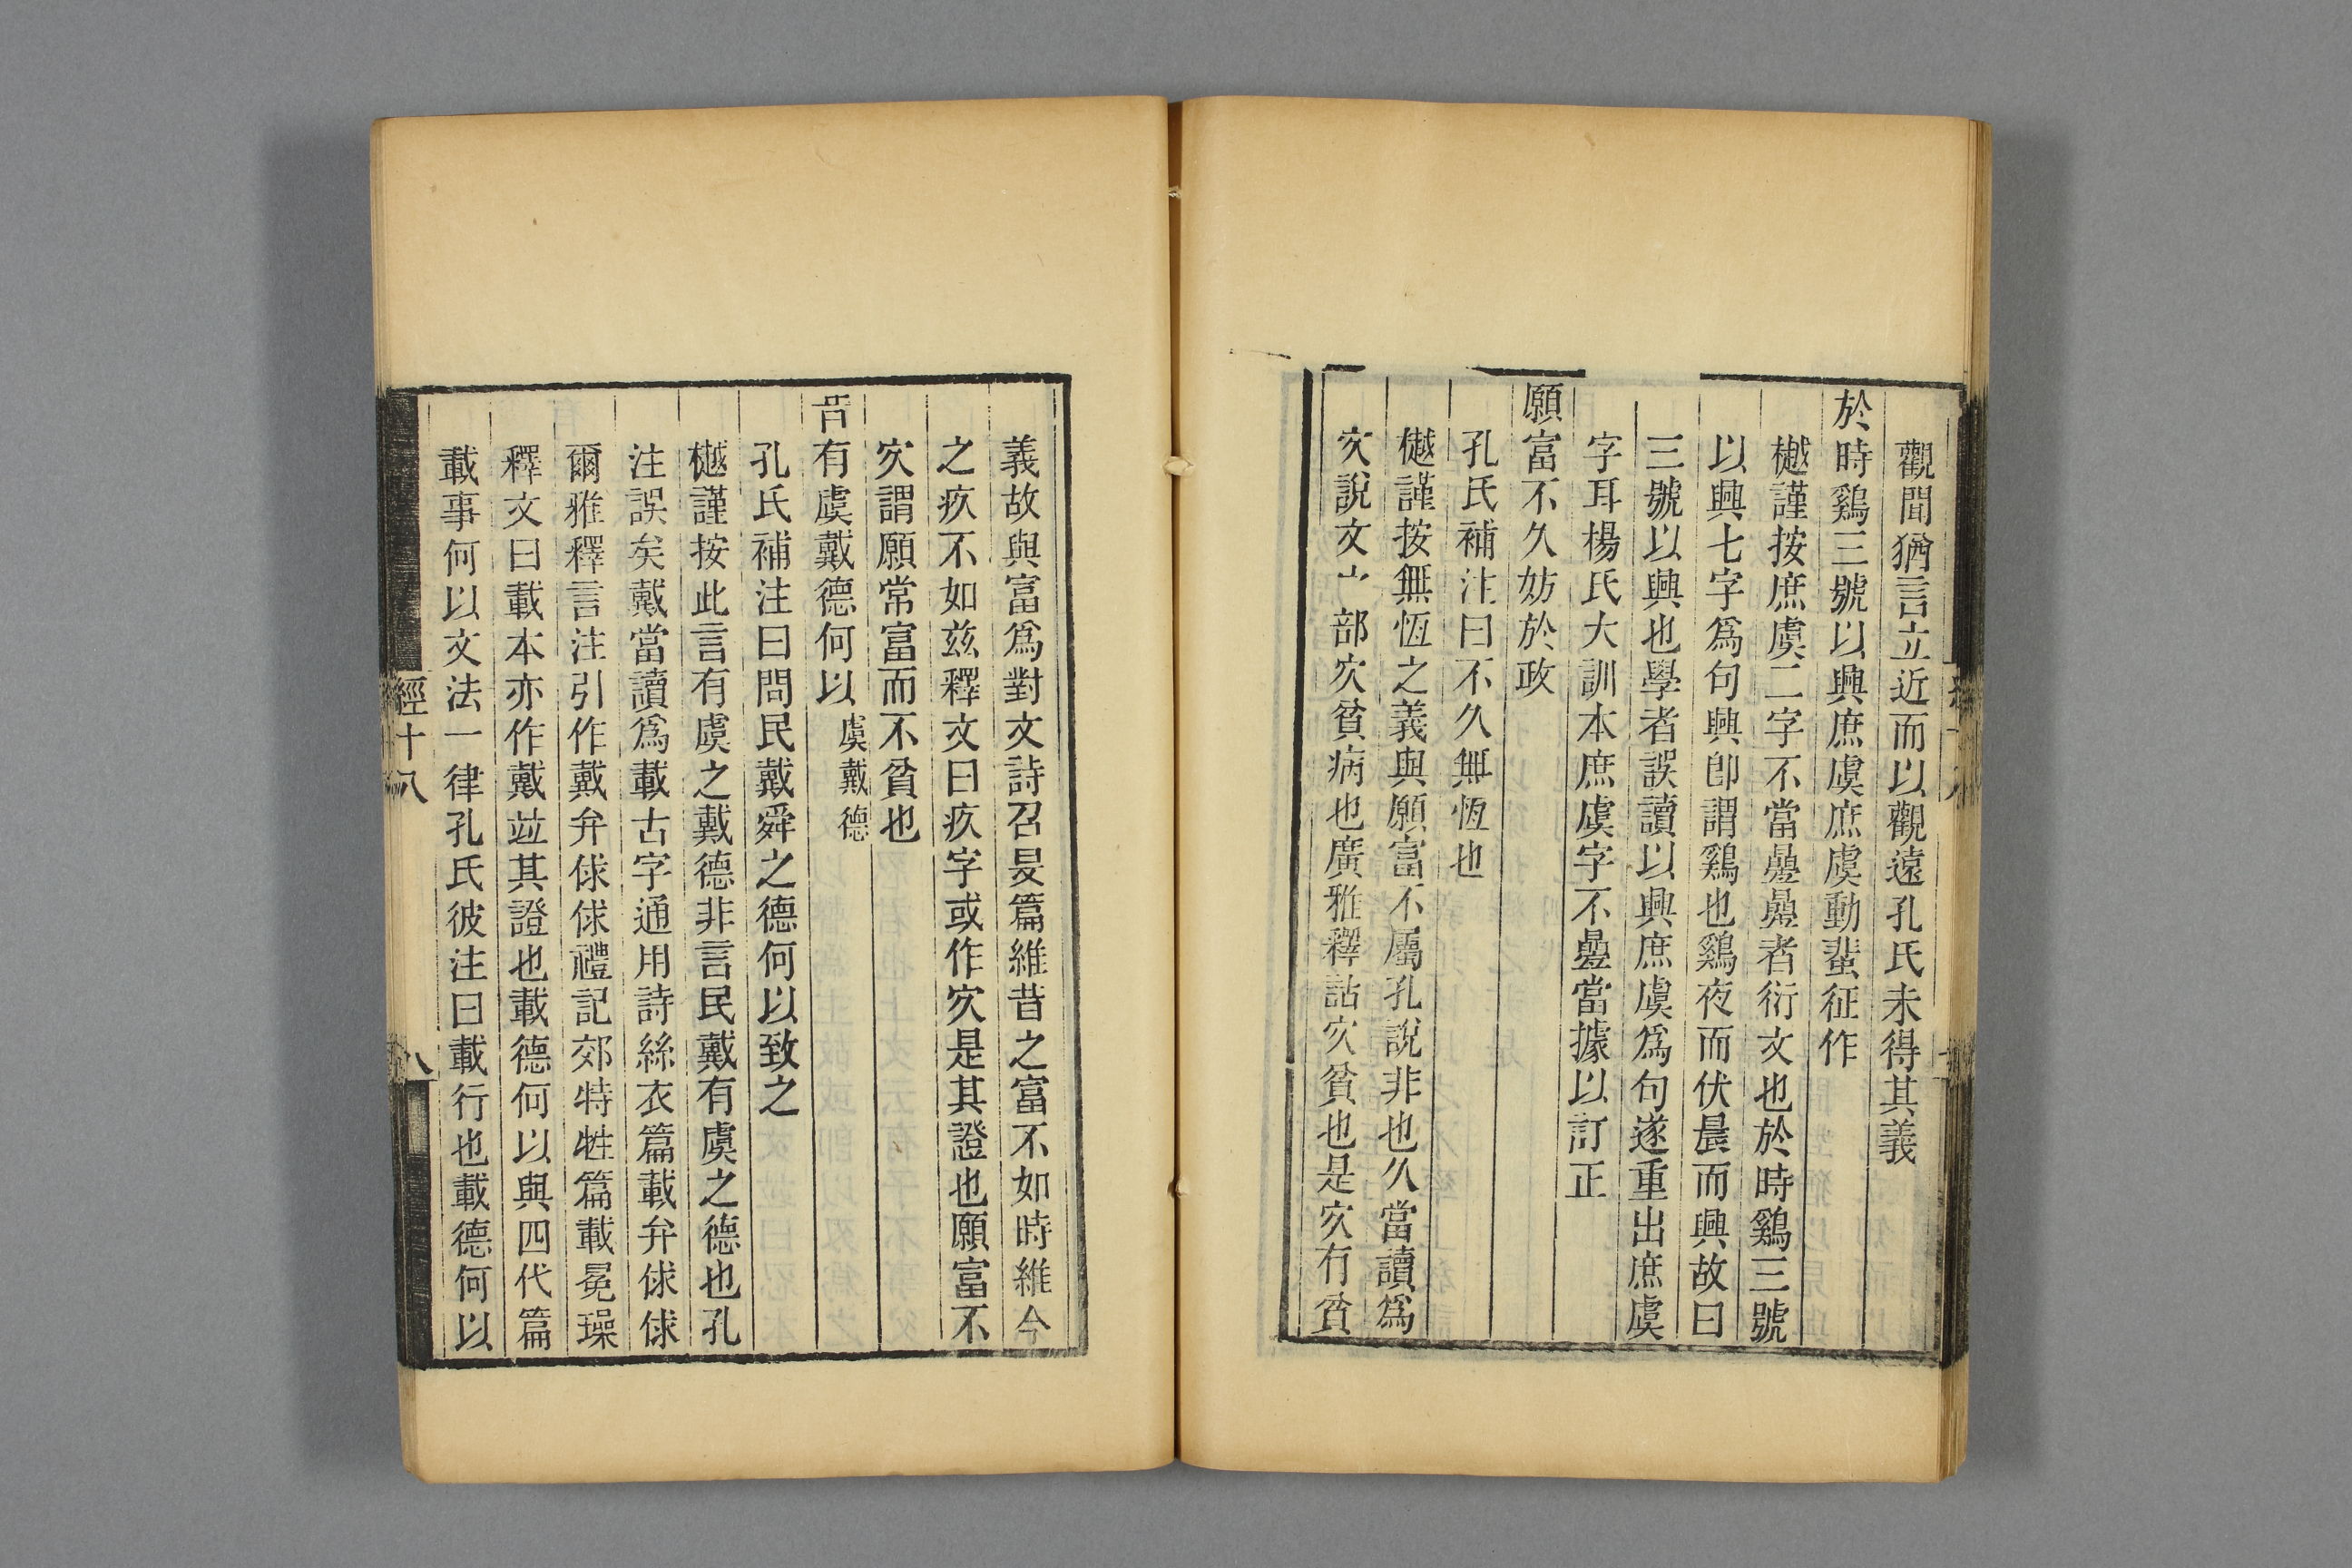 觀聞猶言立近而以觀遠孔氏未得其義
於時鷄三號以興庶虞庶虞動蜚征作
樾謹按庶虞二字不當曡曡者衍文也於時鷄三號
以興七字爲句興卽謂鷄也鷄夜而伏晨而興故曰
三號以興也學者誤讀以興庶虞爲句遂重出庶虞
字耳楊氏大訓本庶虞字不曡當據以訂正
願富不久妨於政
孔氏補注曰不久無恆也
樾謹按無恆之義與願富不屬孔說非也久當讀爲
㝌說文宀部㝌貧病也廣雅釋詁㝌貧也是㝌有貧
義故與富爲對文詩召旻篇維昔之富不如時維今
之疚不如茲釋文曰疚字或作㝌是其證也願富不
㝌謂願常富而不貧也
昔有虞戴德何以 虞戴德
孔氏補注曰問民戴舜之德何以致之
樾謹按此言有虞之戴德非言民戴有虞之德也孔
注誤矣戴當讀爲載古字通用詩絲衣篇載弁俅俅
爾雅釋言注引作戴弁俅俅禮記郊特牲篇載冕璪
釋文曰載本亦作戴竝其證也載德何以與四代篇
載事何以文法一律孔氏彼注曰載行也載德何以
經十八
八